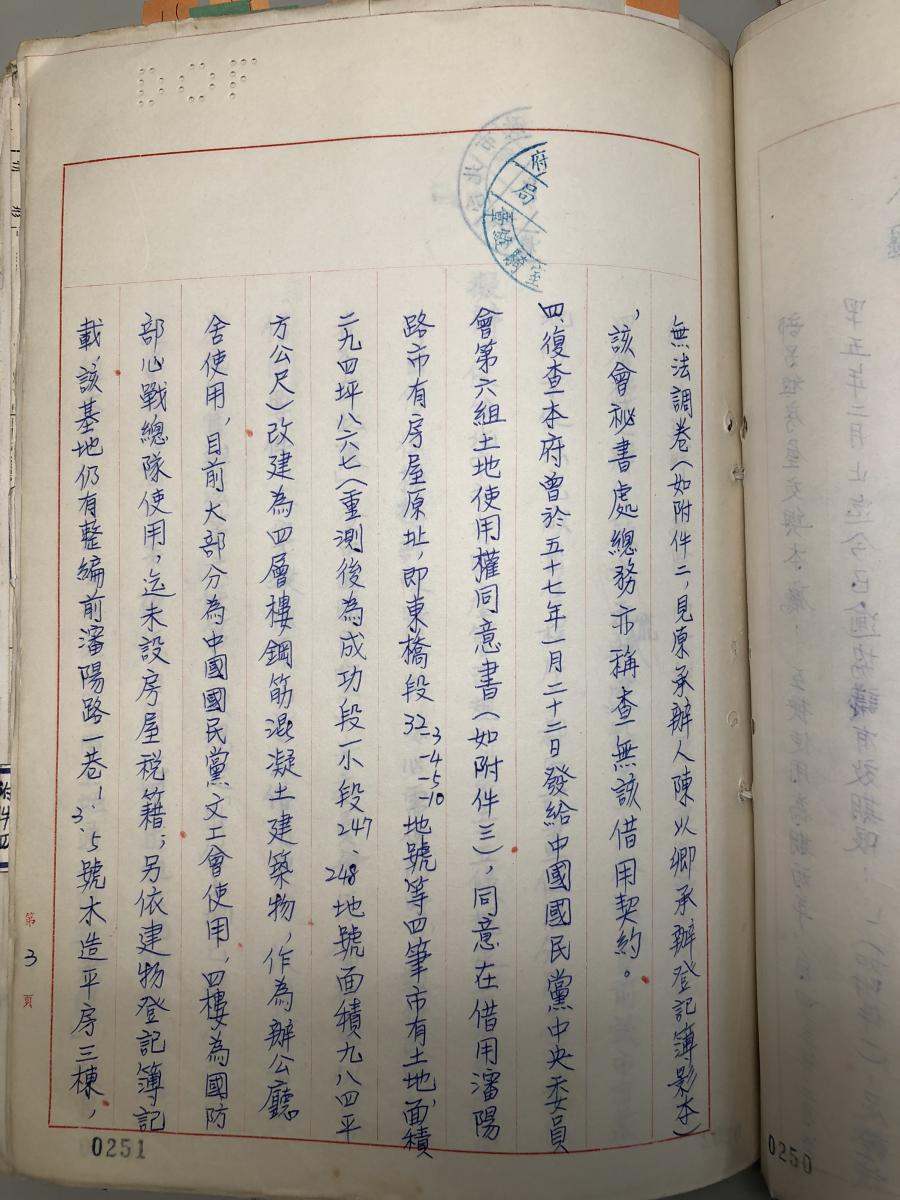 DOF
府
局
騎縫章
無法調卷(如附件二,見原承辦人陳以卿承辦登記簿影本)
,該會祕書處總務亦稱查無該借用契約。
四、復查本府曾於五十七年一月二十二日發給中國國民黨中央委員
會第六組土地使用權同意書(如附件三),同意在借用瀋陽
路市有房屋原址,即東橋段32-3 -4 -5 -10地號等四筆市有土地,面積
二九四坪八六七(重測後為成功段一小段247、248地號面積九八四平
方公尺)改建為四層樓鋼筋混凝土建築物,作為辦公廳
舍使用,目前大部分為中國國民黨文工會使用,四樓為國防
部心戰總隊使用,迄未設房屋稅籍;另依建物登記簿記
載,該基地仍有整編前瀋陽路一巷1.3.5號木造平房三棟,
第3頁
0251
0250